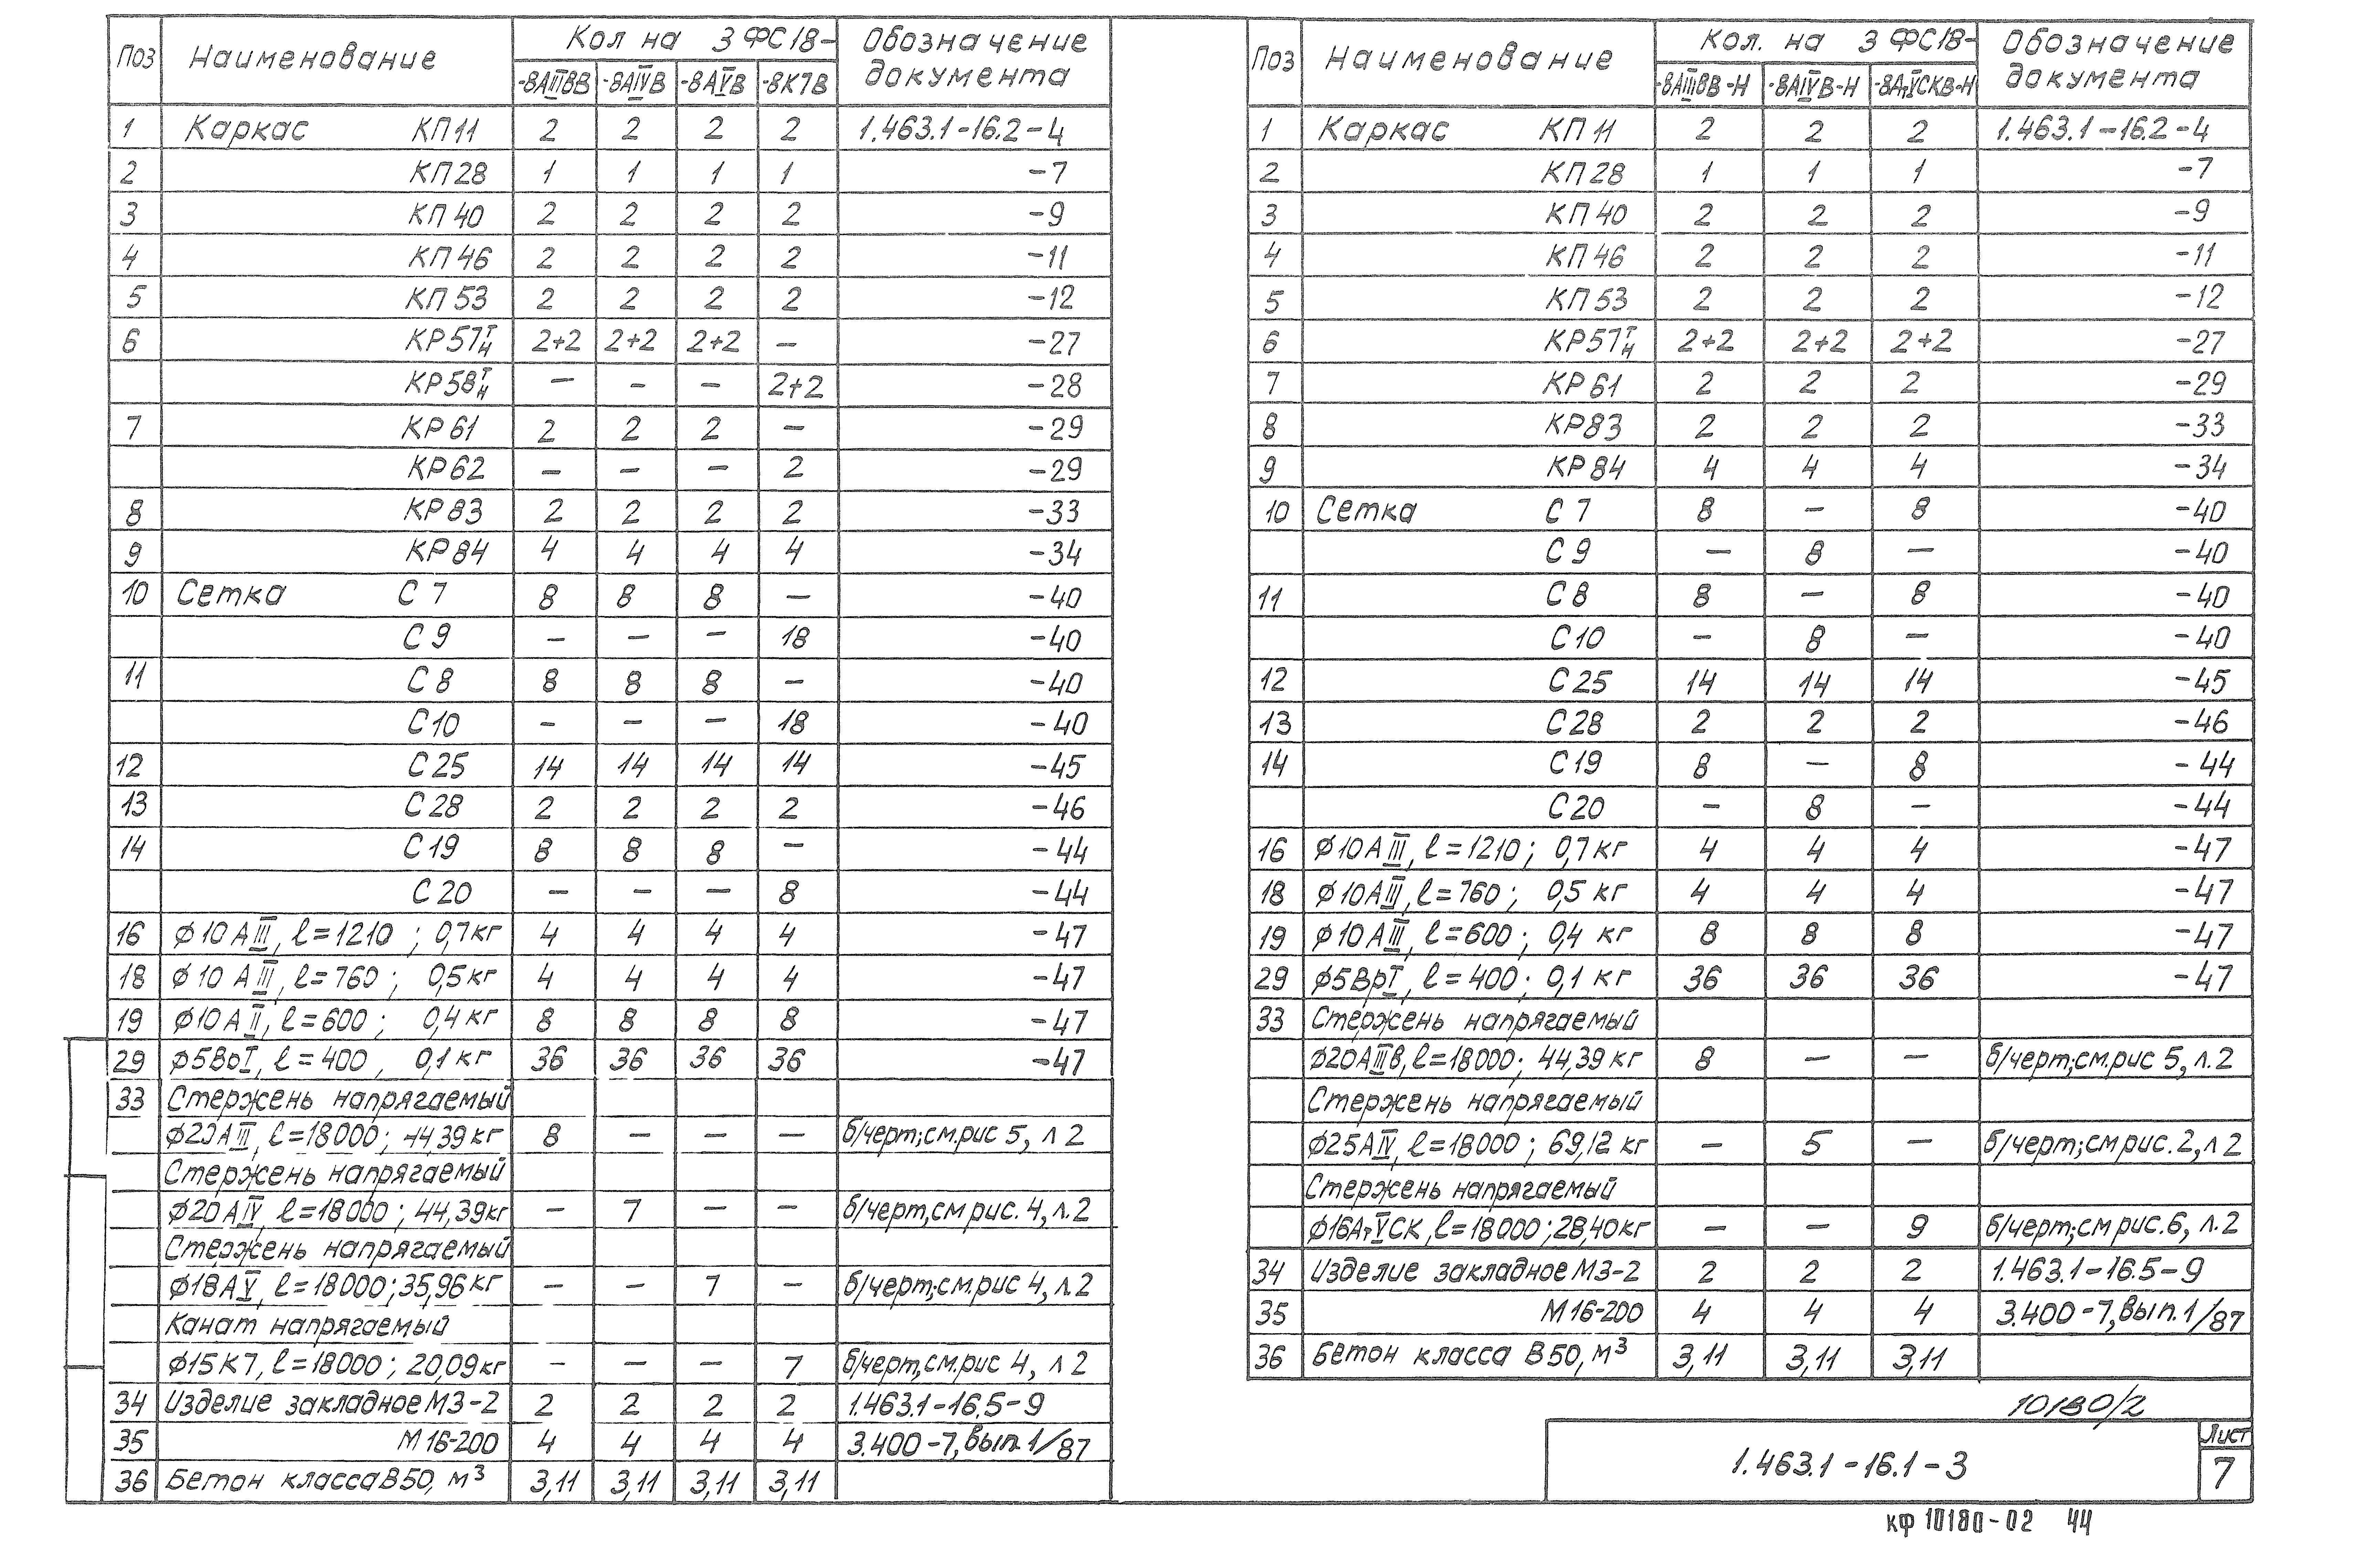 Поз Наименование Кол на 3ФС18- Обозначение документа
-8АIIIвВ -8АIVВ -8АVВ -8К7В
1 Каркас КП11 2 2 2 2 1.463.1-16.2-4
2 КП28 1 1 1 1 -7
3 КП40 2 2 2 2 -9
4 КП46 2 2 2 2 -11
5 КП53 2 2 2 2 -12
6 КР57тн 2+2 2+2 2+2 – -27
КР58тн – – – 2+2 -28
7 КР61 2 2 2 – -29
КР62 – – – 2 -29
8 КР83 2 2 2 2 -33
9 КР84 4 4 4 4 -34
10 Сетка С7 8 8 8 – -40
С9 – – – 18 -40
11 С8 8 8 8 – -40
С10 – – – 18 -40
12 С25 14 14 14 14 -45
13 С28 2 2 2 2 -46
14 С19 8 8 8 – -44
С20 – – – 8 -44
16 ⌀10АIII, ℓ=1210; 0,7кг 4 4 4 4 -47
18 ⌀10АIII, ℓ=760; 0,5кг 4 4 4 4 -47
19 ⌀10АII, ℓ=600; 0,4кг 8 8 8 8 -47
29 ⌀5ВрI, ℓ=400, 0,1кг 36 36 36 36 -47
33 Стержень напрягаемый
⌀20АIII, ℓ=18000; 44,39кг 8 – – – б/черт; см.рис 5, л 2
Стержень напрягаемый
⌀20АIV, ℓ=18000; 44,39кг – 7 – – б/черт, см рис. 4, л.2
Стержень напрягаемый
⌀18АV, ℓ=18000; 35,96кг – – 7 – б/черт; см.рис 4, л.2
Канат напрягаемый
⌀15К7, ℓ=18000; 20,09кг – – – 7 б/черт, см.рис 4, л 2
34 Изделие закладное МЗ-2 2 2 2 2 1.463.1-16.5-9
35 М16-200 4 4 4 4 3.400-7, вып. 1/87
36 Бетон класса В50, м³ 3,11 3,11 3,11 3,11
Поз Наименование Кол. на 3ФС18- Обозначение документа
-8АIIIвВ-Н -8АIVВ-Н -8АтVСКВ-Н
1 Каркас КП11 2 2 2 1.463.1-16.2-4
2 КП28 1 1 1 -7
3 КП40 2 2 2 -9
4 КП46 2 2 2 -11
5 КП53 2 2 2 -12
6 КР57тн 2+2 2+2 2+2 -27
7 КР61 2 2 2 -29
8 КР83 2 2 2 -33
9 КР84 4 4 4 -34
10 Сетка С7 8 – 8 -40
С9 – 8 – -40
11 С8 8 – 8 -40
С10 – 8 – -40
12 С25 14 14 14 -45
13 С28 2 2 2 -46
14 С19 8 – 8 -44
С20 – 8 – -44
16 ⌀10АIII, ℓ=1210; 0,7кг 4 4 4 -47
18 ⌀10АIII, ℓ=760; 0,5кг 4 4 4 -47
19 ⌀10АIII, ℓ=600; 0,4 кг 8 8 8 -47
29 ⌀5ВрI, ℓ=400; 0,1 кг 36 36 36 -47
33 Стержень напрягаемый
⌀20АIIIв, ℓ=18000; 44,39 кг 8 – – б/черт; см.рис 5, л.2
Стержень напрягаемый
⌀25АIV, ℓ=18000; 69,12 кг – 5 – б/черт; см рис. 2, л 2
Стержень напрягаемый
⌀16АтVСК, ℓ=18000; 28,40кг – – 9 б/черт; см рис. 6, л.2
34 Изделие закладное МЗ-2 2 2 2 1.463.1-16.5-9
35 М16-200 4 4 4 3.400-7, вып. 1/87
36 Бетон класса В50, м³ 3,11 3,11 3,11
10180/2
1.463.1-16.1-3
Лист
7
кф 10180-02 44